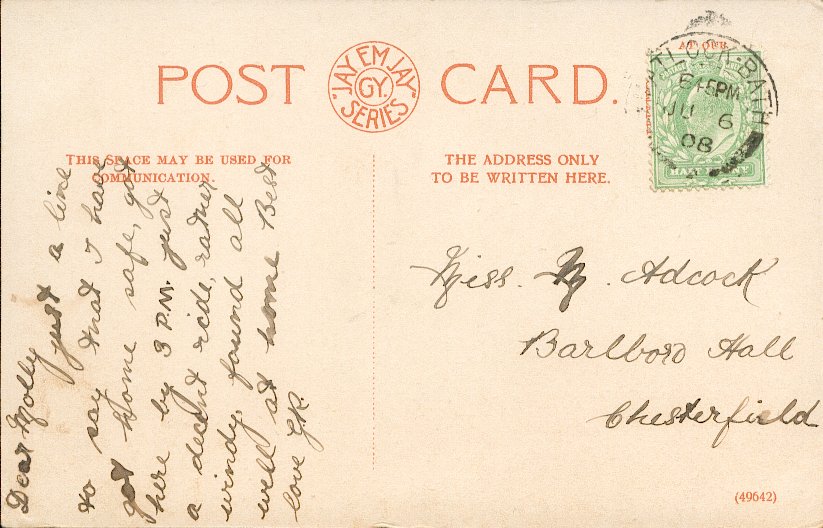 POST CARD.
"JAY EM JAY" GY. SERIES
THIS SPACE MAY BE USED FOR
COMMUNICATION.
THE ADDRESS ONLY
TO BE WRITTEN HERE.
MATLOCK-BATH
6 45PM
JU 6
08
HALFPENNY
Dear Molly just a line
to say that I have
got home safe, got
here by 3 P.M. just
a decent ride, rather
windy, found all
well at home Best
love G.K.
Miss. M. Adcock
Barlboro Hall
Chesterfield
(49642)